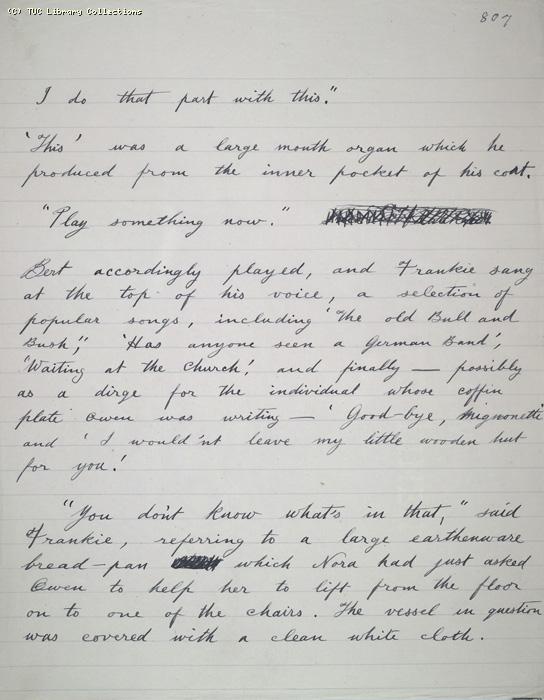 (C) TUC Library Collections
807
I do that part with this."
'This' was a large mouth organ which he
produced from the inner pocket of his coat.
"Play something now."
Bert accordingly played, and Frankie sang
at the top of his voice, a selection of
popular songs, including 'The old Bull and
Bush', 'Has anyone seen a German Band',
'Waiting at the Church', and finally — possibly
as a dirge for the individual whose coffin
plate Owen was writing — 'Good-bye, Mignonette'
and 'I would'nt leave my little wooden hut
for you.'
"You don't know what's in that," said
Frankie, referring to a large earthenware
bread-pan which Nora had just asked
Owen to help her to lift from the floor
on to one of the chairs. The vessel in question
was covered with a clean white cloth.